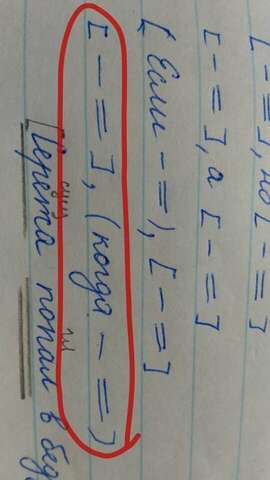 [ – = ], но [ – = ]
[ – = ], а [ – = ]
( Если – = ), [ – = ]
[ – = ], (когда – = )
сущ гл
[Серёжа попал в бед